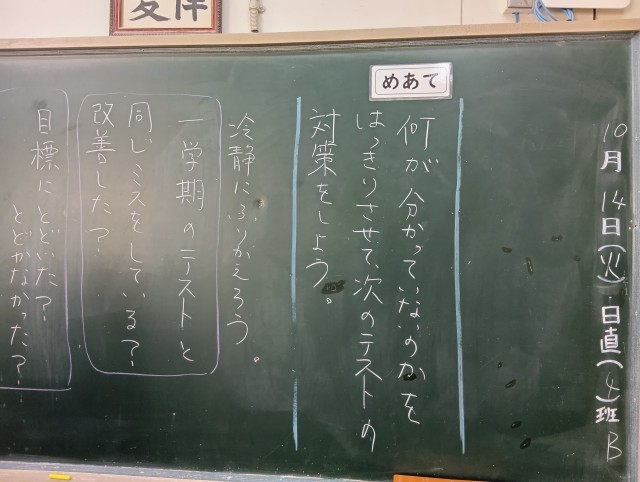 10月 14日(火) 日直(4)班 B
めあて
何が分かっていないのかを
はっきりさせて、次のテストの
対策をしよう。
冷静にふりかえろう。
一学期のテストと
同じミスをしている?
改善した?
目標にとどいた?
とどかなかった?